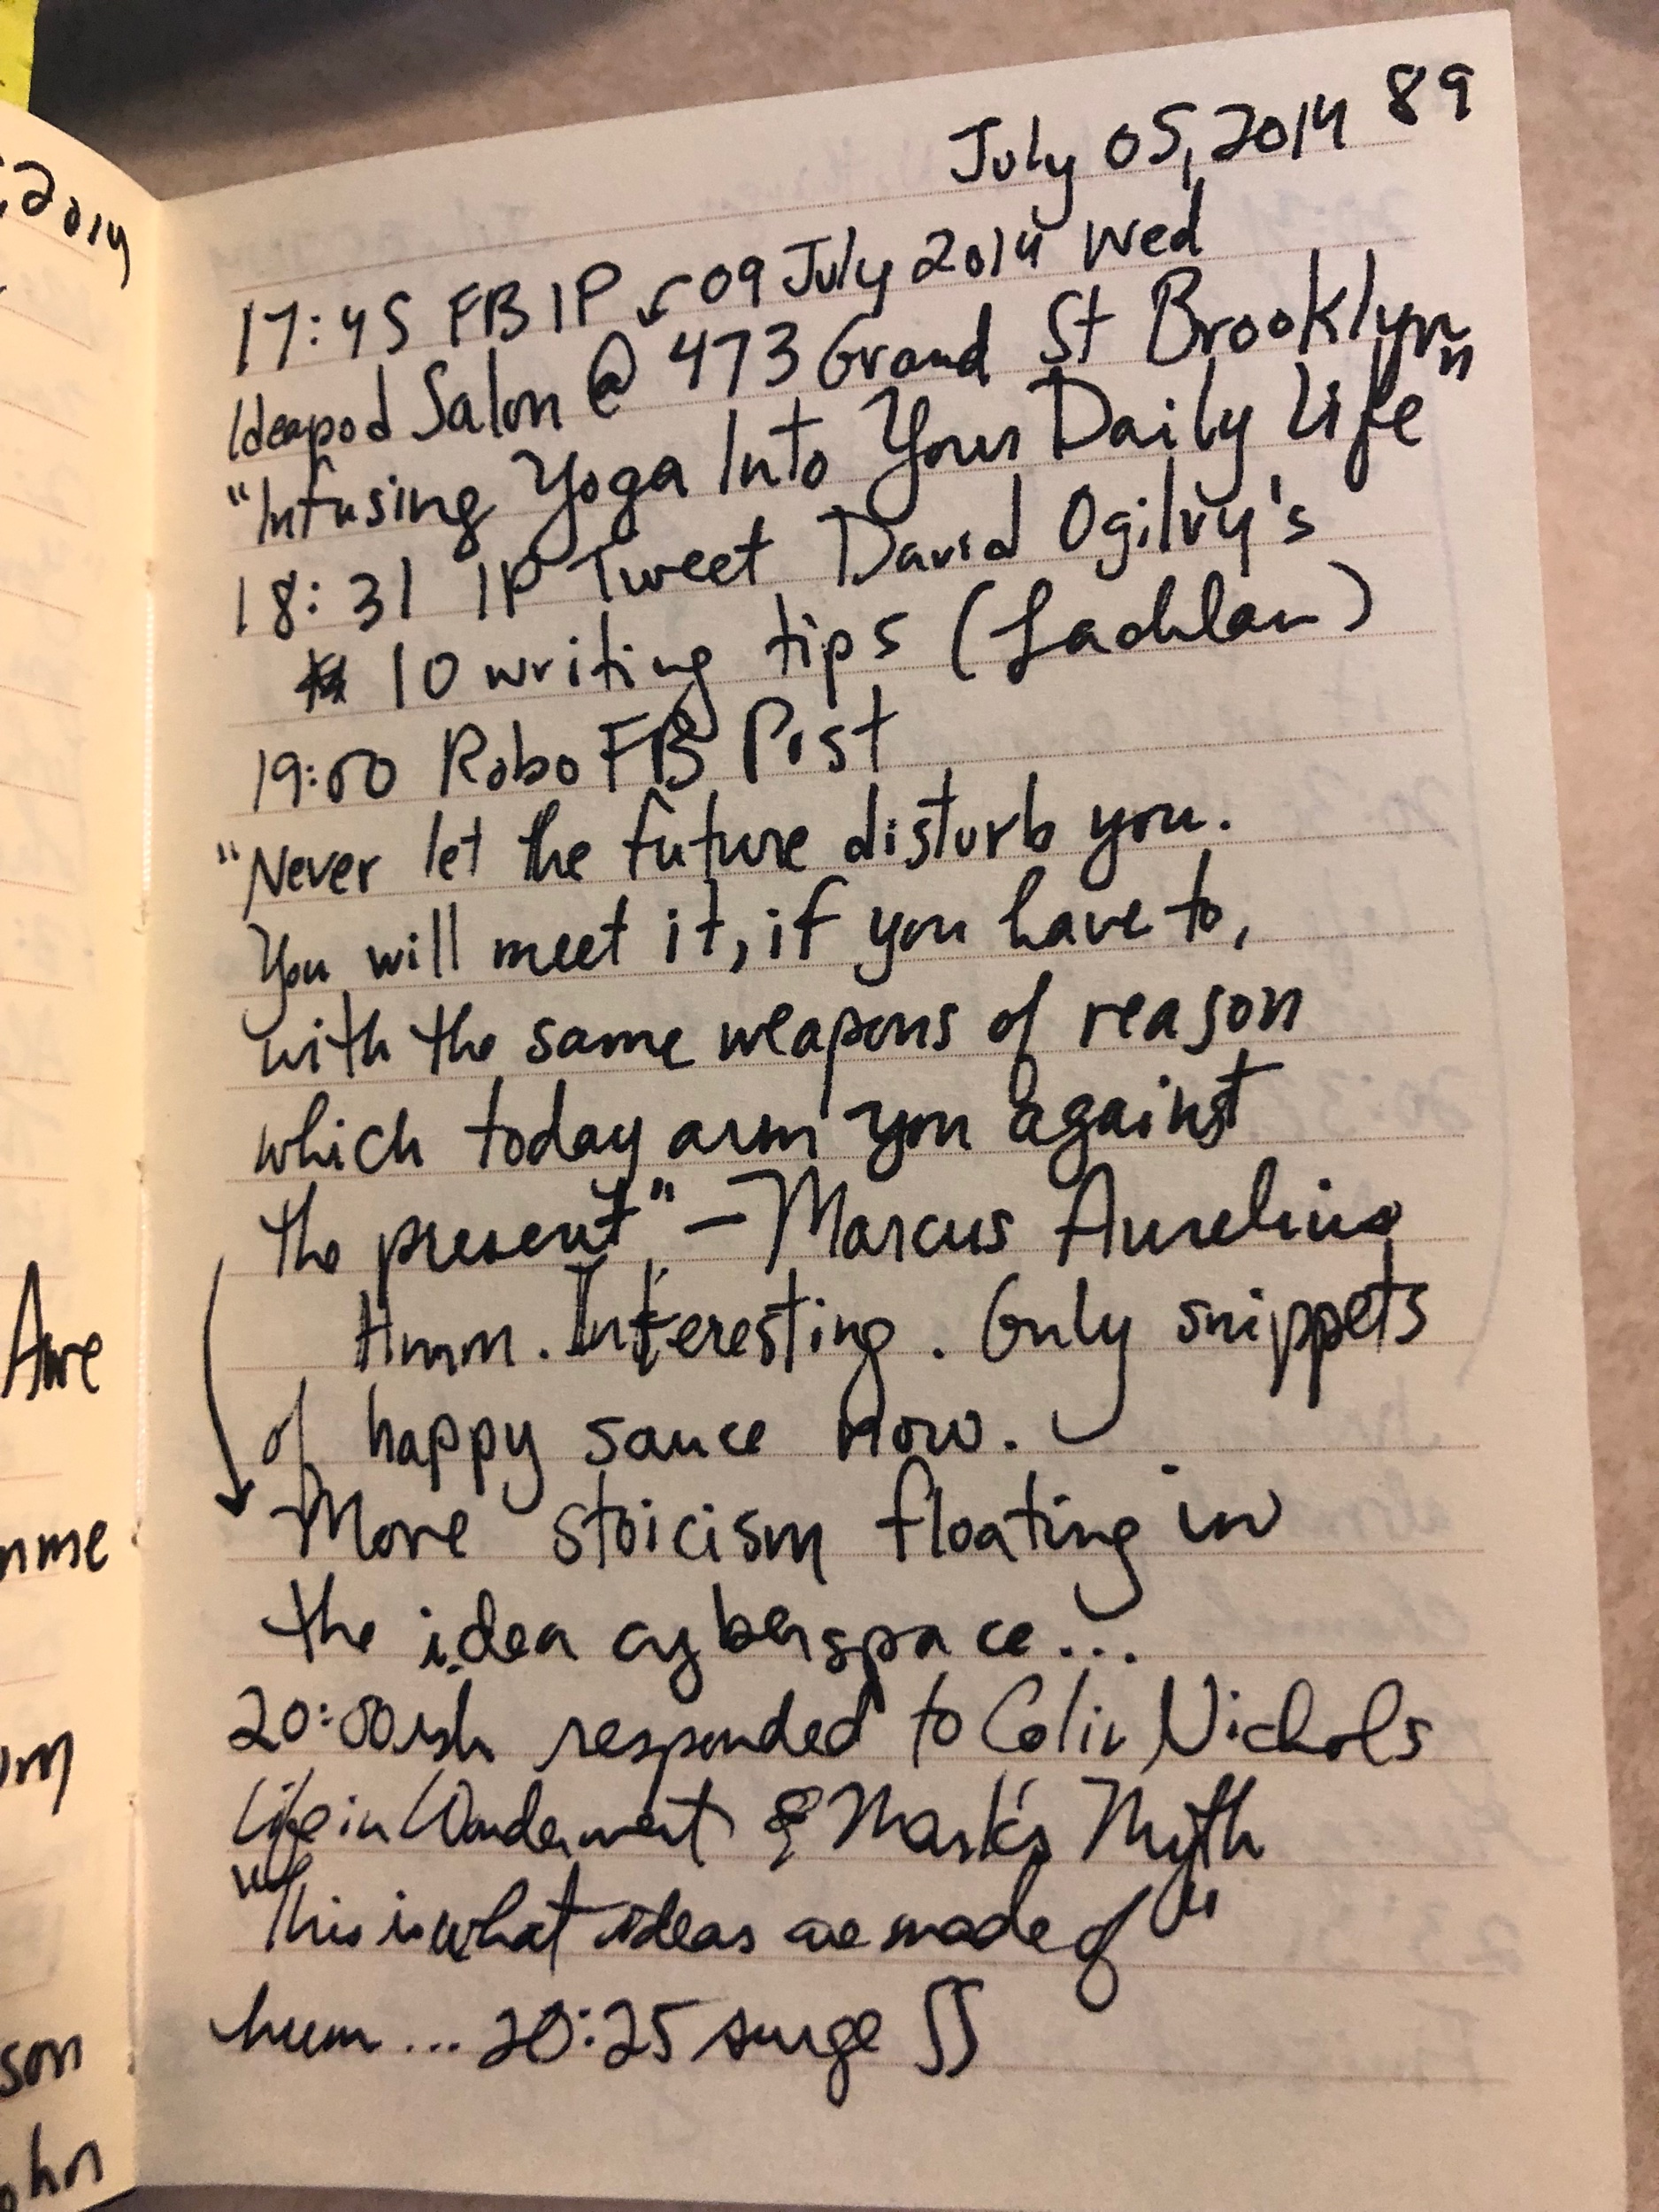 July 05, 2014 89
17:45 FB IP ↙ 09 July 2014 Wed
Ideapod Salon @ 473 Grand St Brooklyn
"Infusing Yoga Into Your Daily Life"
18:31 IP Tweet David Ogilvy's
10 writing tips (Lachlan)
19:00 Robo FB Post
"Never let the future disturb you.
You will meet it, if you have to,
with the same weapons of reason
which today arm you against
the present" - Marcus Aurelius
Hmm. Interesting. Only snippets
of happy sauce now.
More stoicism floating in
the idea cyberspace...
20:00ish responded to Colin Nichols
Life in Wonderment & Mark's Myth
"This is what ideas are made of"
hum... 20:25 surge ∫∫
,2014
Awe
mme
son
ohn